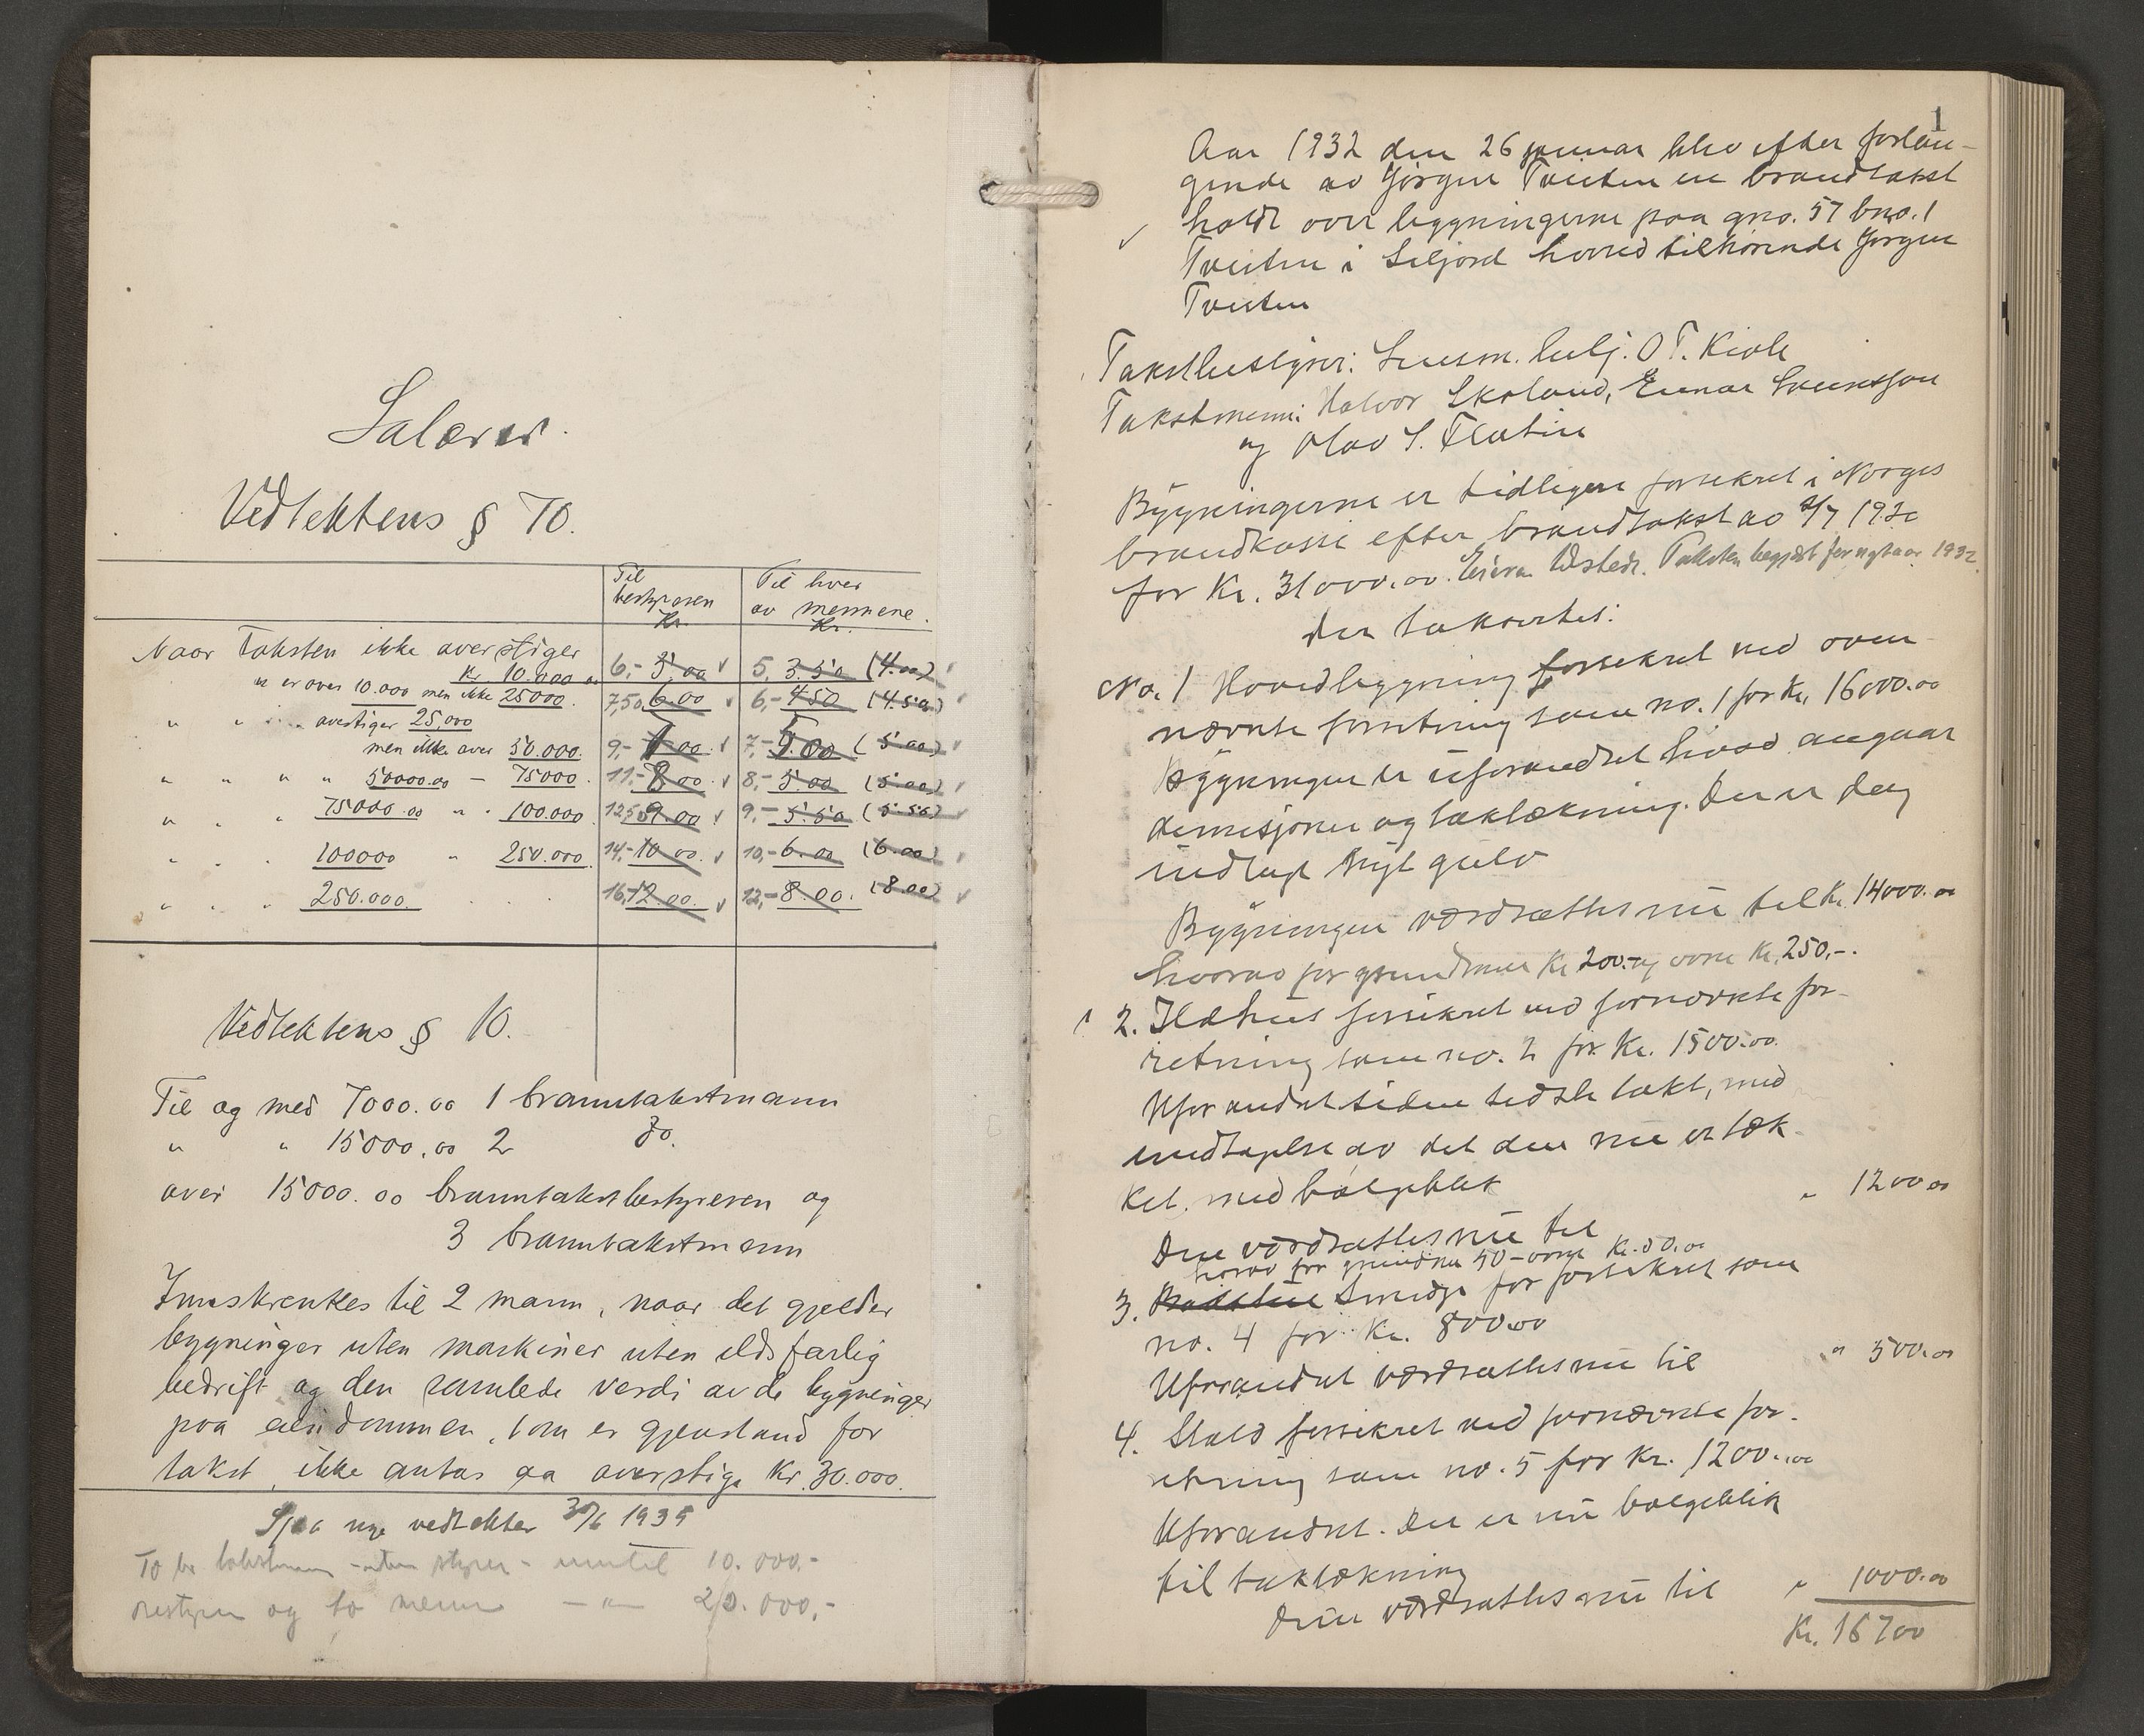 Salærer.
Vedtektens § 70.
Til bestyreren Kr.
Til hver av mennene. Kr.
Naar taksten ikke overstiger Kr 10.000 6,- 5,00 5, 3.50 (4.00)
" er over 10.000 men ikke 25000. 7,50 6.00 6,- 4.50 (4.50)
" " overstiger 25,000
men ikke over 50.000. 9,- 7.00 7,- 5.00 (5.00)
" " " " 50000.00 — 75000. 11,- 8.00 8,- 5.00 (5.00)
" " " 75000.00 " " 100.000. 12,50 9.00 9,- 5.50 (5.50)
" " " 100000 " 250.000. 14,- 10.00. 10,- 6.00 (6.00)
" " " 250.000. 16,- 12.00. 12,- 8.00. (8.00)
Vedtektens § 10.
Til og med 7000.00 1 branntakstmann
" " 15000.00 2 do.
over 15000.00 branntakstbestyreren og
3 branntakstmenn
Innskrenkes til 2 mann, naar det gjelder
bygninger uten maskiner uten ildsfarlig
bedrift og den samlede verdi av de bygninger
paa eiendommen, som er gjenstand for
takst, ikke antas aa overstige Kr. 30.000.
Sjaa nye vedtekter 30/6 1939
To br takstmenn - uten styrer - inntil 10.000,-
Bestyrer og to menn — " — 20.000,-
1
Aar 1932 den 26 januar blev efter forlan-
gende av Jørgen Tveiten en brandtakst
holdt over bygningerne paa gno. 57 bno. 1
Tveiten i Seljord herred tilhørende Jørgen
Tveiten
Takstbestyrer: Lensm. O T. Kivle
Takstmenn: Halvor Skoland, Einar Sveinsson
og Olav S. Flatin
Bygningerne er tidligere forsikret i Norges
brandkasse efter brandtakst av /7 1920
for Kr. 31000.00. Taksten begjært for nytaar 1932.
Der takseertes:
No. 1 Hovedbygning forsikret ved oven-
nævnte forretning som no. 1 for Kr. 16000.00
Bygningen er uforandret hvad angaar
dimensjoner og taktækning. Der er dog
indlagt nyt gulv
Bygningen værdsættes nu til Kr. 14000.00
hvorav for grundmur Kr 200.- og ovne Kr. 250.-.
2. Ildhus forsikret ved fornævnte for-
retning som no. 2 for Kr. 1500.00.
Uforandret siden sidste takst, med
undtagelse av det den nu er tæk-
ket med bølgeblik
Den værdsættes nu til " 1200.00
herav for grundmur 50 - ovne Kr. 50.00
3. Smidje forsikret som
no. 4 for Kr. 800.00
Uforandret værdsættes nu til " 500.00
4. Stald forsikret ved fornævnte for-
retning som no. 5 for Kr. 1200.00
Uforandret. Der er nu bølgeblik
til taktækning
Den værdsættes nu til " 1000.00
Kr. 16700